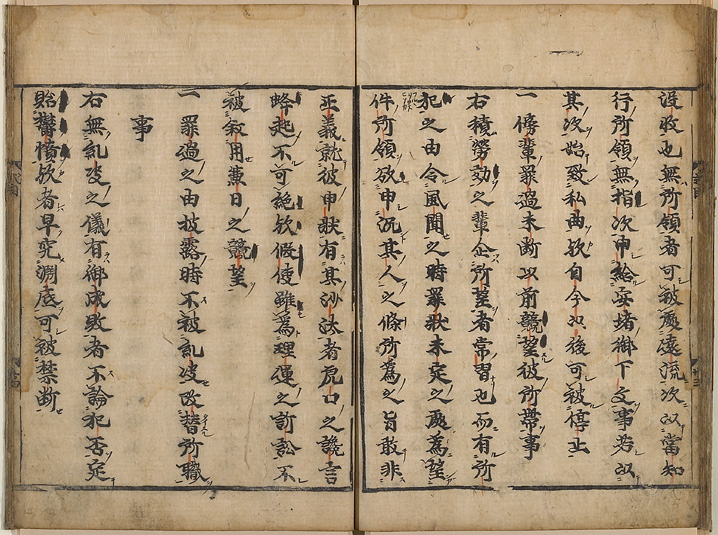 没收也無所領者可被處遠流次以當知
行所領無指次申給安堵御下文事若以
其次始致私曲歟自今以後可被停止
一傍輩罪過未断以前競望彼所帯事
右積勞効之輩企所望者常習也而有所
犯之由令風聞之時罪状未定之處為望
件所領欲申沉其人之條所為之旨敢非
正義就彼申状有其沙汰者虎口之讒言
蜂起不可絶歟假使雖為理運之訴訟不
被叙用兼日之競望
一罪過之由披露時不被糺决改替所職
事
右無糺决之儀有御成敗者不論犯否定
貽欝憤歟者早究渊底可被禁断